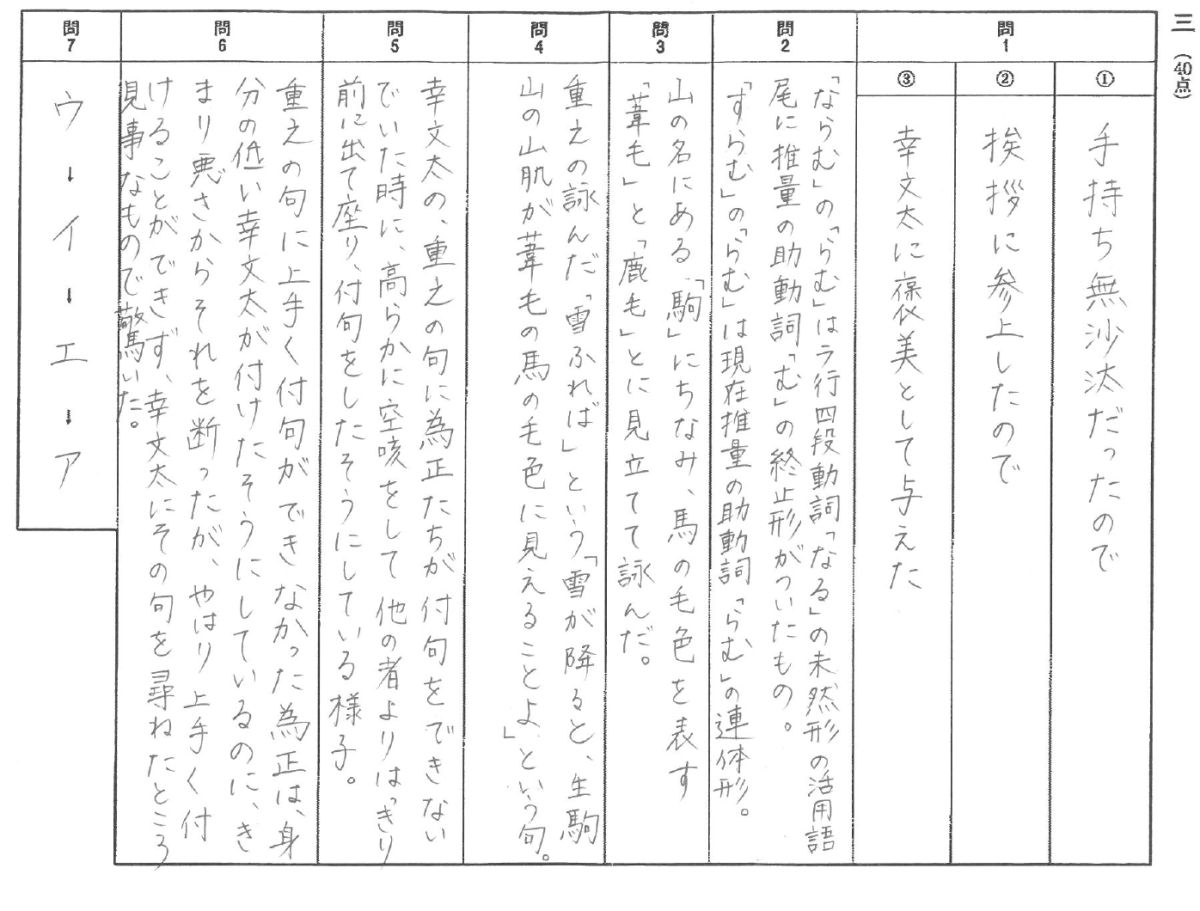 三（40点）
問1
①
手持ち無沙汰だったので
②
挨拶に参上したので
③
幸文太に褒美として与えた
問2
「ならむ」の「らむ」はラ行四段動詞「なる」の未然形の活用語
尾に推量の助動詞「む」の終止形がついたもの。
「すらむ」の「らむ」は現在推量の助動詞「らむ」の連体形。
問3
山の名にある「駒」にちなみ、馬の毛色を表す
「葦毛」と「鹿毛」とに見立てて詠んだ。
問4
重之の詠んだ「雪ふれば」という「雪が降ると、生駒
山の山肌が葦毛の馬の毛色に見えることよ」という句。
問5
幸文太の、重之の句に為正たちが付句をできない
でいた時に、高らかに空咳をして他の者よりはっきり
前に出て座り、付句をしたそうにしている様子。
問6
重之の句に上手く付句ができなかった為正は、身
分の低い幸文太が付けたそうにしているのに、き
まり悪さからそれを断ったが、やはり上手く付
けることができず、幸文太にその句を尋ねたところ
見事なもので驚いた。
問7
ウ→イ→エ→ア